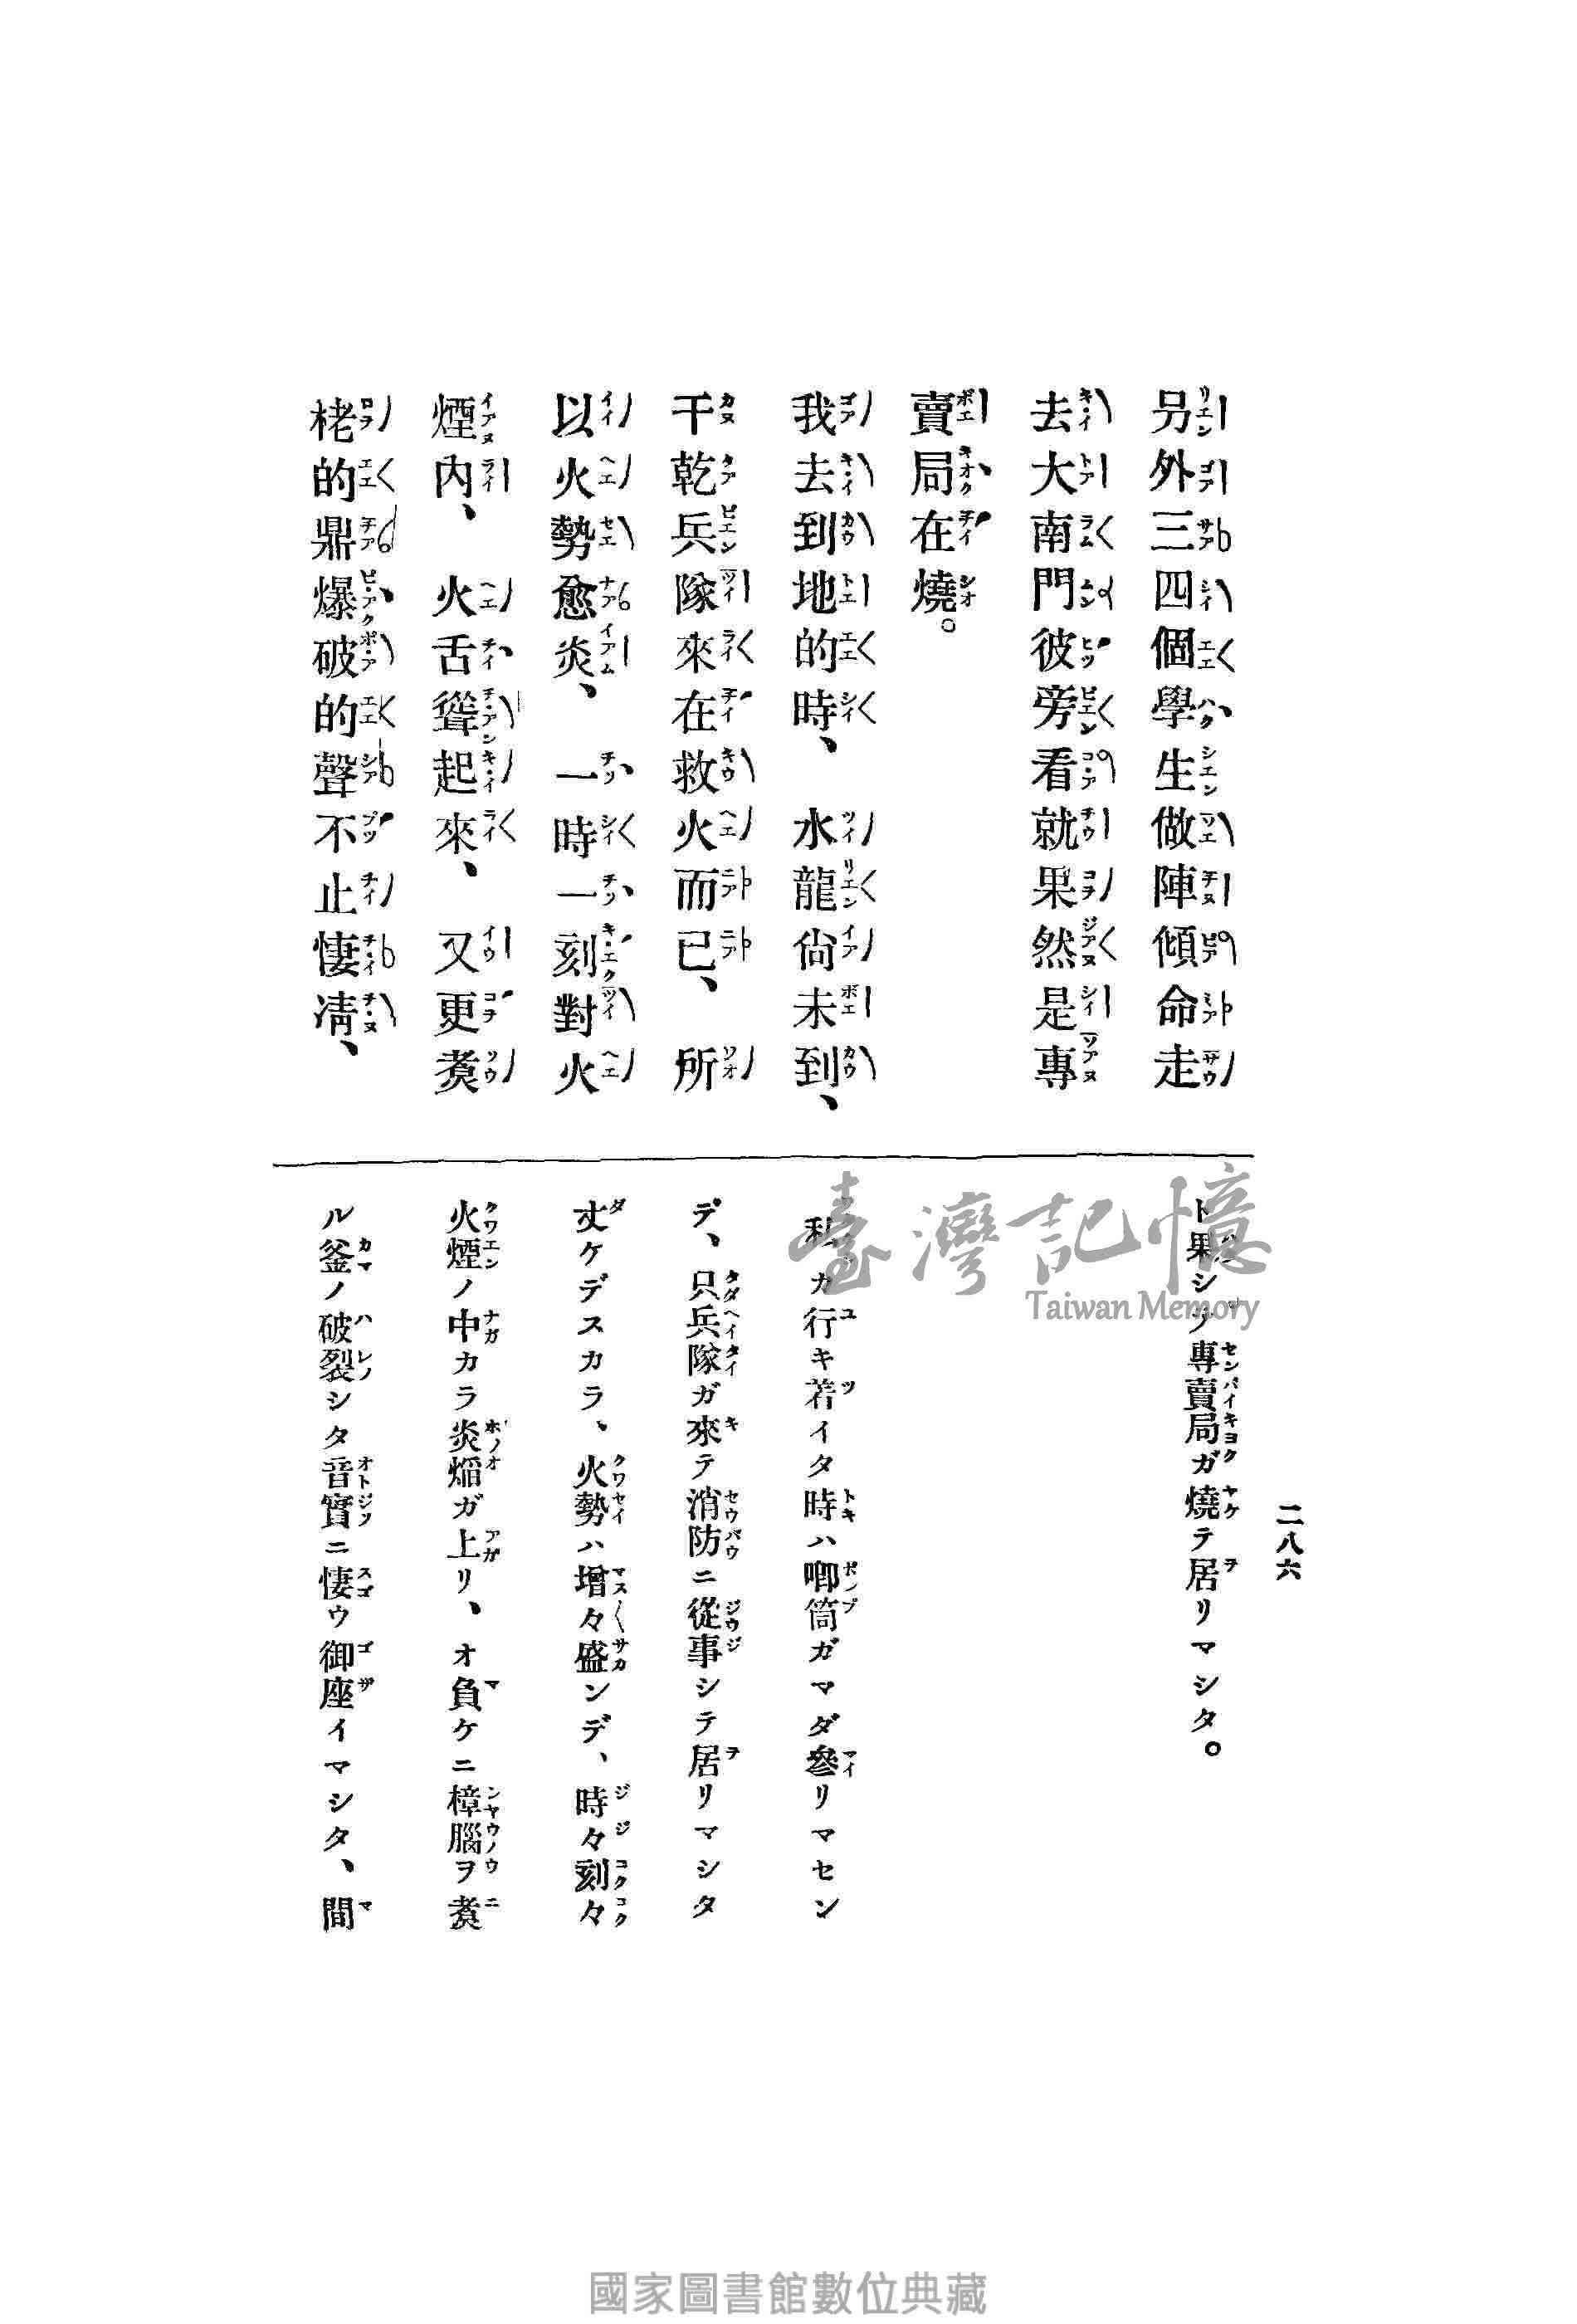 二八六
另外三四個學生做陣傾命走
去大南門彼旁看就果然是專
賣局在燒。
我去到地的時、水龍尙未到、
干乾兵隊來在救火而已、所
以火勢愈炎、一時一刻對火
煙內、火舌聳起來、又更煑
栳的鼎爆破的聲不止悽凊、
ト果シテ專賣局ガ燒テ居リマシタ。
私カ行キ若イタ時ハ喞筒ガマダ參リマセン
デ、只兵隊ガ來テ消防ニ從事シテ居リマシタ
丈ケデスカラ、火勢ハ增々盛ンデ、時々刻々
火煙ノ中カラ炎焰ガ上リ、オ負ケニ樟腦ヲ煑
ル釜ノ破裂シタ音實ニ悽ウ御座イマシタ、間
臺灣記憶
Taiwan Memory
國家圖書館數位典藏